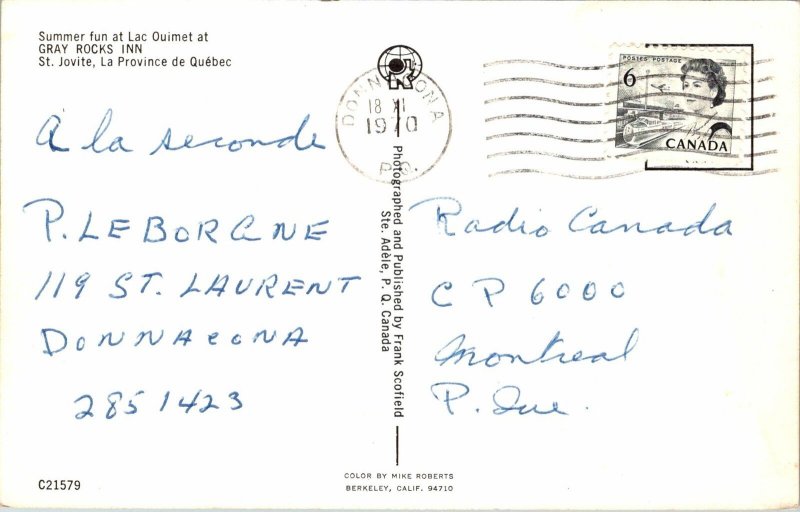 Summer fun at Lac Ouimet at
GRAY ROCKS INN
St. Jovite, La Province de Québec
À la seconde
P. LEBORGNE
119 ST. LAURENT
DONNACONA
285 1423
C21579
DONNACONA
18 XI
1970
P.Q.
Photographed and Published by Frank Scofield
Ste. Adèle, P. Q. Canada
COLOR BY MIKE ROBERTS
BERKELEY, CALIF. 94710
POSTES POSTAGE
6
CANADA
Radio Canada
C P 6000
Montreal
P. Que.